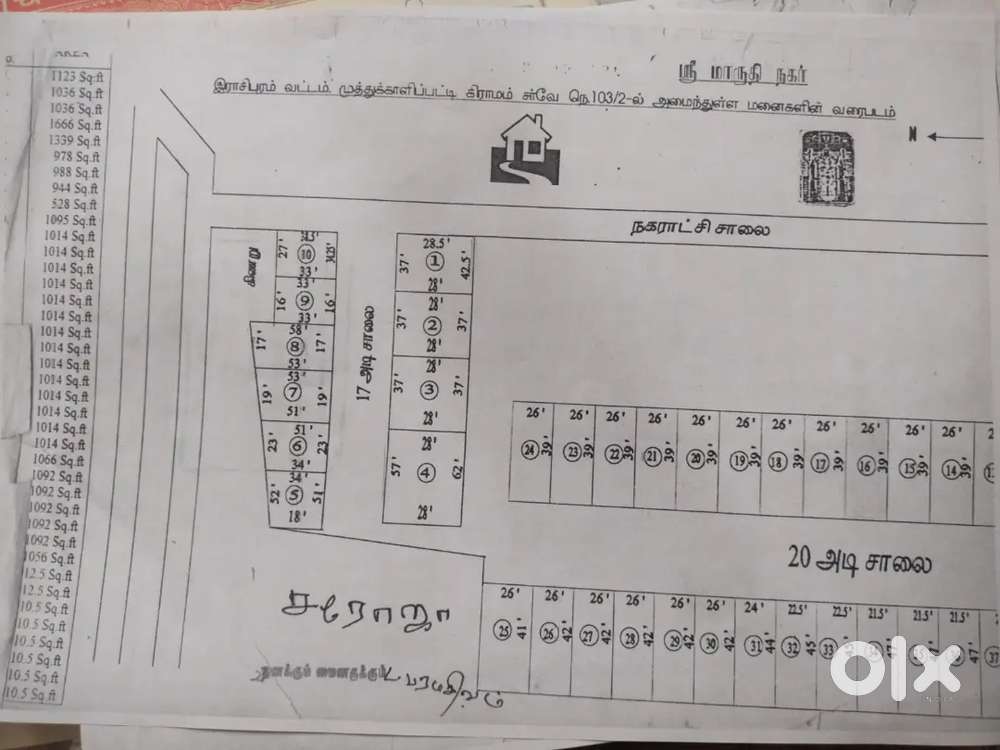 ஸ்ரீ மாருதி நகர்
இராசிபுரம் வட்டம் முத்துக்காளிப்பட்டி கிராமம் சர்வே நெ.103/2-ல் அமைந்துள்ள மனைகளின் வரைபடம்
N
நகராட்சி சாலை
1123 Sq.ft
1036 Sq.ft
1036 Sq.ft
1666 Sq.ft
1339 Sq.ft
978 Sq.ft
988 Sq.ft
944 Sq.ft
528 Sq.ft
1095 Sq.ft
1014 Sq.ft
1014 Sq.ft
1014 Sq.ft
1014 Sq.ft
1014 Sq.ft
1014 Sq.ft
1014 Sq.ft
1014 Sq.ft
1014 Sq.ft
1014 Sq.ft
1014 Sq.ft
1014 Sq.ft
1014 Sq.ft
1014 Sq.ft
1066 Sq.ft
1092 Sq.ft
1092 Sq.ft
1092 Sq.ft
1092 Sq.ft
1092 Sq.ft
1056 Sq.ft
12.5 Sq.ft
12.5 Sq.ft
10.5 Sq.ft
10.5 Sq.ft
10.5 Sq.ft
10.5 Sq.ft
10.5 Sq.ft
10.5 Sq.ft
கிணறு
27' 10
33'
33'
16' 9 16'
33'
58'
17' 8 17'
53'
53'
19' 7 19'
51'
51'
23' 6 23'
34'
34'
52' 5 51'
18'
17 அடி சாலை
28.5'
37' 1 42.5'
28'
28'
37' 2 37'
28'
28'
37' 3 37'
28'
28'
57' 4 62'
28'
26' 26' 26' 26' 26' 26' 26' 26' 26' 26' 26'
24 39' 23 39' 22 39' 21 39' 20 39' 19 39' 18 39' 17 39' 16 39' 15 39' 14 39'
20 அடி சாலை
26' 26' 26' 26' 26' 26' 24' 22.5' 22.5' 21.5' 21.5' 21.5'
25 41' 26 42' 27 42' 28 42' 29 42' 30 42' 31 44' 32 45' 33 47' 37
சரோஜா
பரமசிவம்
olx